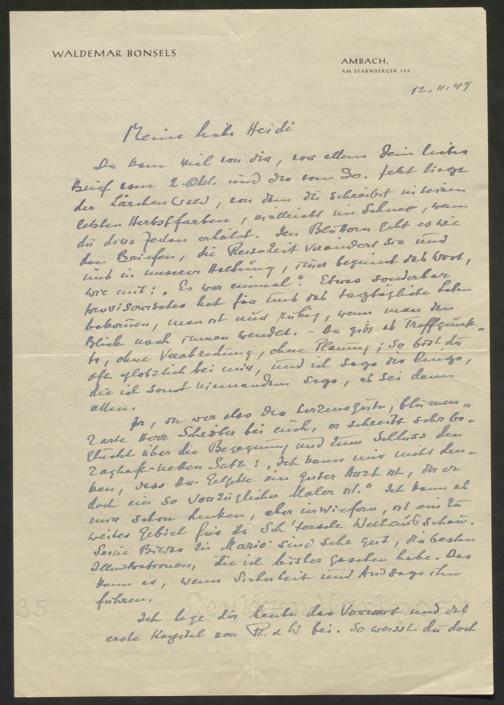 WALDEMAR BONSELS
AMBACH,
AM STARNBERGER SEE
12.11.47
Meine liebe Heidi
Da kam viel von dir, vor allem dein lieber
Brief vom 2. Okt. und der vom 30. Jetzt liegt
der Lärchenwald, von dem du schreibst in seinen
letzten Herbstfarben, vielleicht im Schnee, wenn
du diese Zeilen erhältst. Den Blättern geht es wie
den Briefen, die Reisezeit verändert sie und
und in unserer
wie mit: „Es war einmal“. Etwas sonderbar
provisorisches hat für uns das tagtägliche Leben
bekommen, man ist nur ruhig, wenn man den
Blick nach innen wendet. – Da gibt es Treffpunk-
te, ohne Verabredung, ohne Planung; So bist du
oft plötzlich bei mir, und ich sage dir Dinge,
die ich sonst niemandem sage, es sei denn
allen.
Ja, so war also der herzensgute, blumen-
zarte Herr bei euch, er schreibt sehr be-
glückt über die Begegnung und zum Schluss den
zaghaft-netten Satz: „Ich kann mir nicht den-
ken, dass Dr. ein guter Arzt ist, da er
doch ein so vorzüglicher Maler ist.“ Ich kann es
mir schon denken, aber inwiefern, ist ein zu
weites Gebiet für die Weltanschau.
Seine Bilder zu Mario sind sehr gut, die besten
Illustrationen, die ich bisher gesehen habe. Das
kann es, wenn Sicherheit und Aussage ihn
führen.
Ich lege dir heute das Vorwort und das
erste Kapitel von bei. So weisst du doch